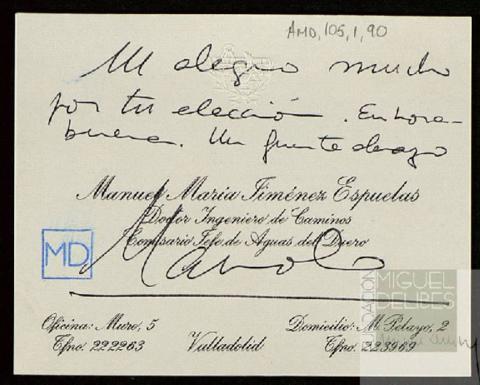 AMD, 105, 1, 90
Me alegro mucho
por tu elección. Enhora-
buena. Un fuerte abrazo
Manuel María Jiménez Espuelas
Doctor Ingeniero de Caminos
Comisario Jefe de Aguas del Duero
Manolo
MD
Oficina: Muro, 5
Tfno. 222263
Valladolid
Domicilio: M. Pelayo, 2
Tfno. 223969
FUNDACIÓN
MIGUEL
DELIBES